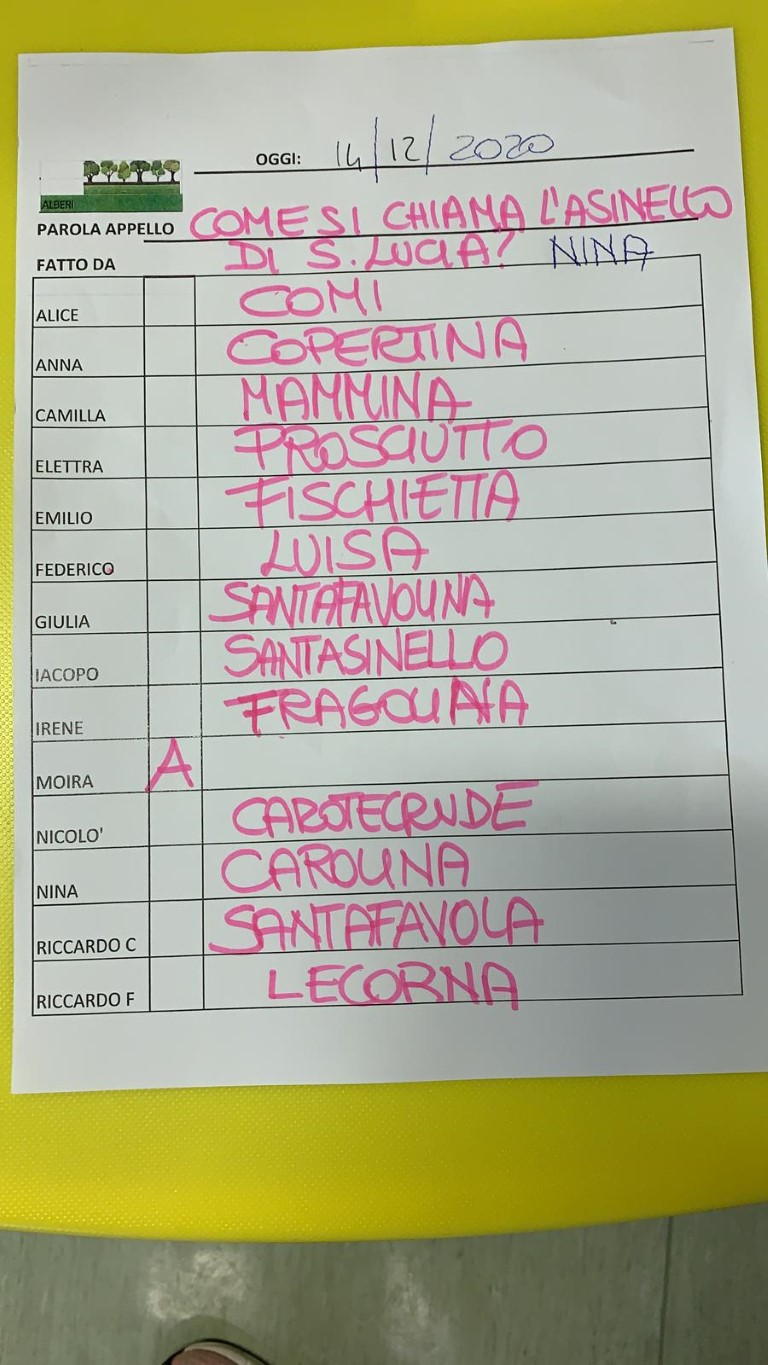 OGGI: 14/12/2020
ALBERI
PAROLA APPELLO COME SI CHIAMA L'ASINELLO
DI S. LUCIA? NINA
FATTO DA
ALICE COMI
ANNA COPERTINA
CAMILLA MAMMINA
ELETTRA PROSCIUTTO
EMILIO FISCHIETTA
FEDERICO LUISA
GIULIA SANTAFAVOLINA
IACOPO SANTASINELLO
IRENE FRAGOLINA
MOIRA A
NICOLO' CAROTECRUDE
NINA CAROLINA
RICCARDO C SANTAFAVOLA
RICCARDO F LECORNA